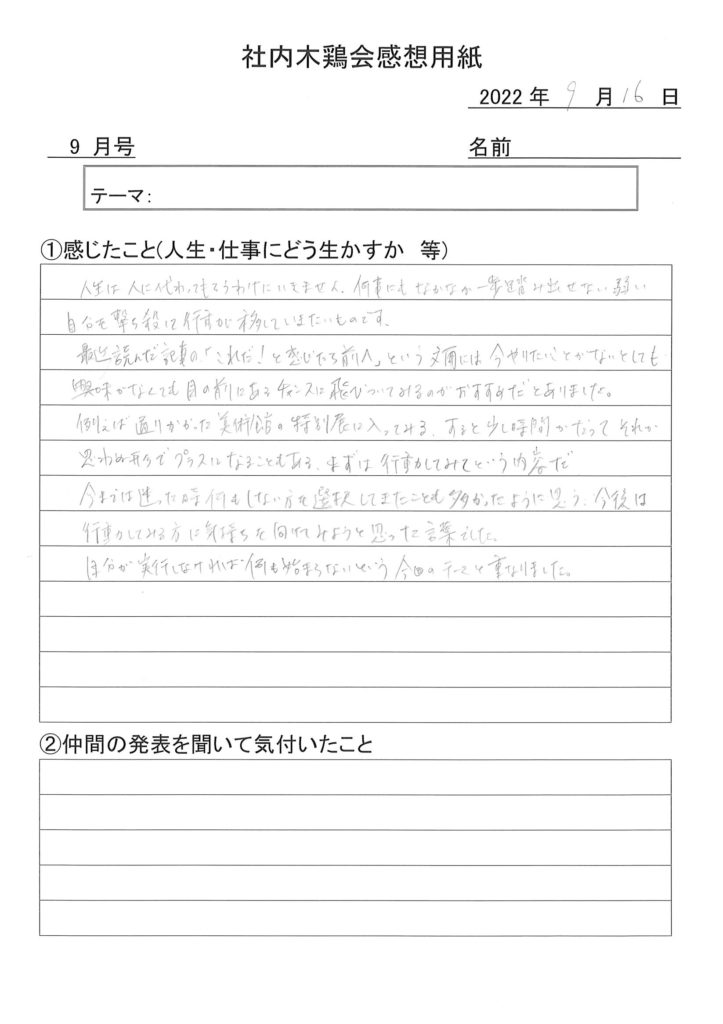 社内木鶏会感想用紙
2022 年 9 月 16 日
9 月号
名前
テーマ：
①感じたこと(人生・仕事にどう生かすか 等)
人生は人に代わってもらうわけにいきません。何事にもなかなか一歩踏み出せない弱い
自分を撃ち殺して行動が移していきたいものです。
最近読んだ記事の「これだ！と感じたら前へ」という文面には今やりたいことがないとしても
興味がなくても目の前にあるチャンスに飛びついてみるのがおすすめだとありました。
例えば通りかかった美術館の特別展に入ってみる。すると少し時間がたって それが
思わぬ形でプラスになることもある。まずは行動してみてという内容だ
今までは迷った時何もしない方を選択してきたことも多かったように思う。今後は
行動してみる方に気持ちを向けてみようと思った言葉でした。
自分が実行しなければ何も始まらないという今回のテーマと重なりました。
②仲間の発表を聞いて気付いたこと